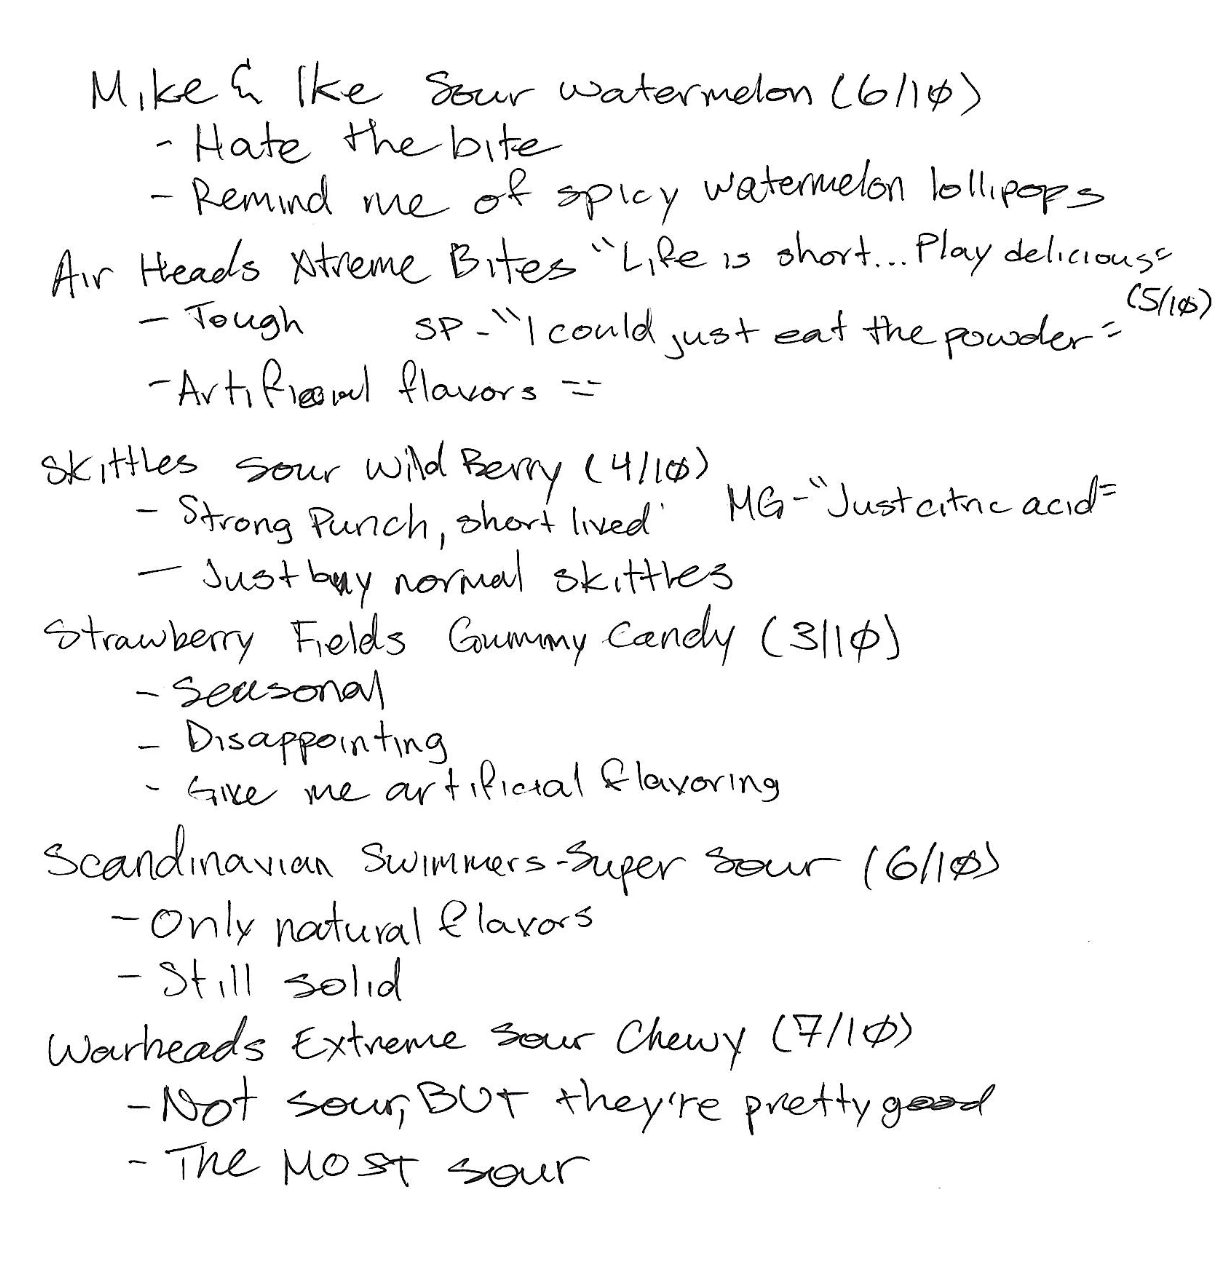 Mike & Ike Sour watermelon (6/10)
- Hate the bite
- Remind me of spicy watermelon lollipops
Air Heads Xtreme Bites "Life is short... Play delicious" (5/10)
- Tough SP - "I could just eat the powder"
- Artificial flavors --
Skittles Sour Wild Berry (4/10)
- Strong Punch, short lived MG - "Just citric acid"
- Just buy normal skittles
Strawberry Fields Gummy Candy (3/10)
- Seasonal
- Disappointing
- Give me artificial flavoring
Scandinavian Swimmers - Super Sour (6/10)
- Only natural flavors
- Still solid
Warheads Extreme Sour Chewy (7/10)
- Not sour, BUT they're pretty good
- The MOST sour